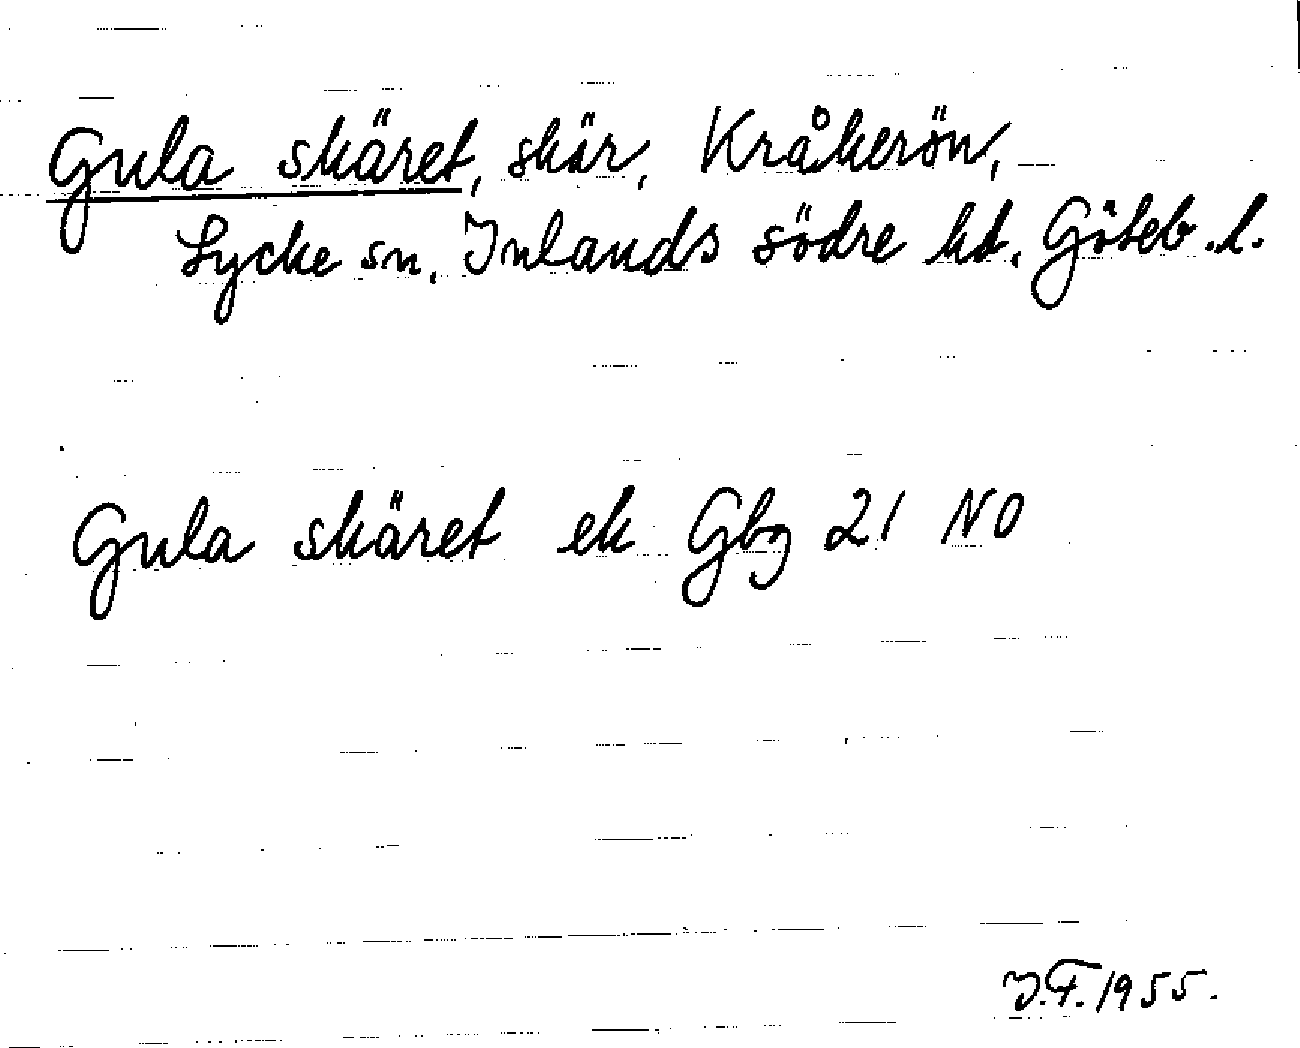 Gula skäret, skär, Kråkerön,
Lycke sn, Inlands södre hd, Göteb.l.
Gula skäret ek Gbg 21 NO
J.F. 1955.